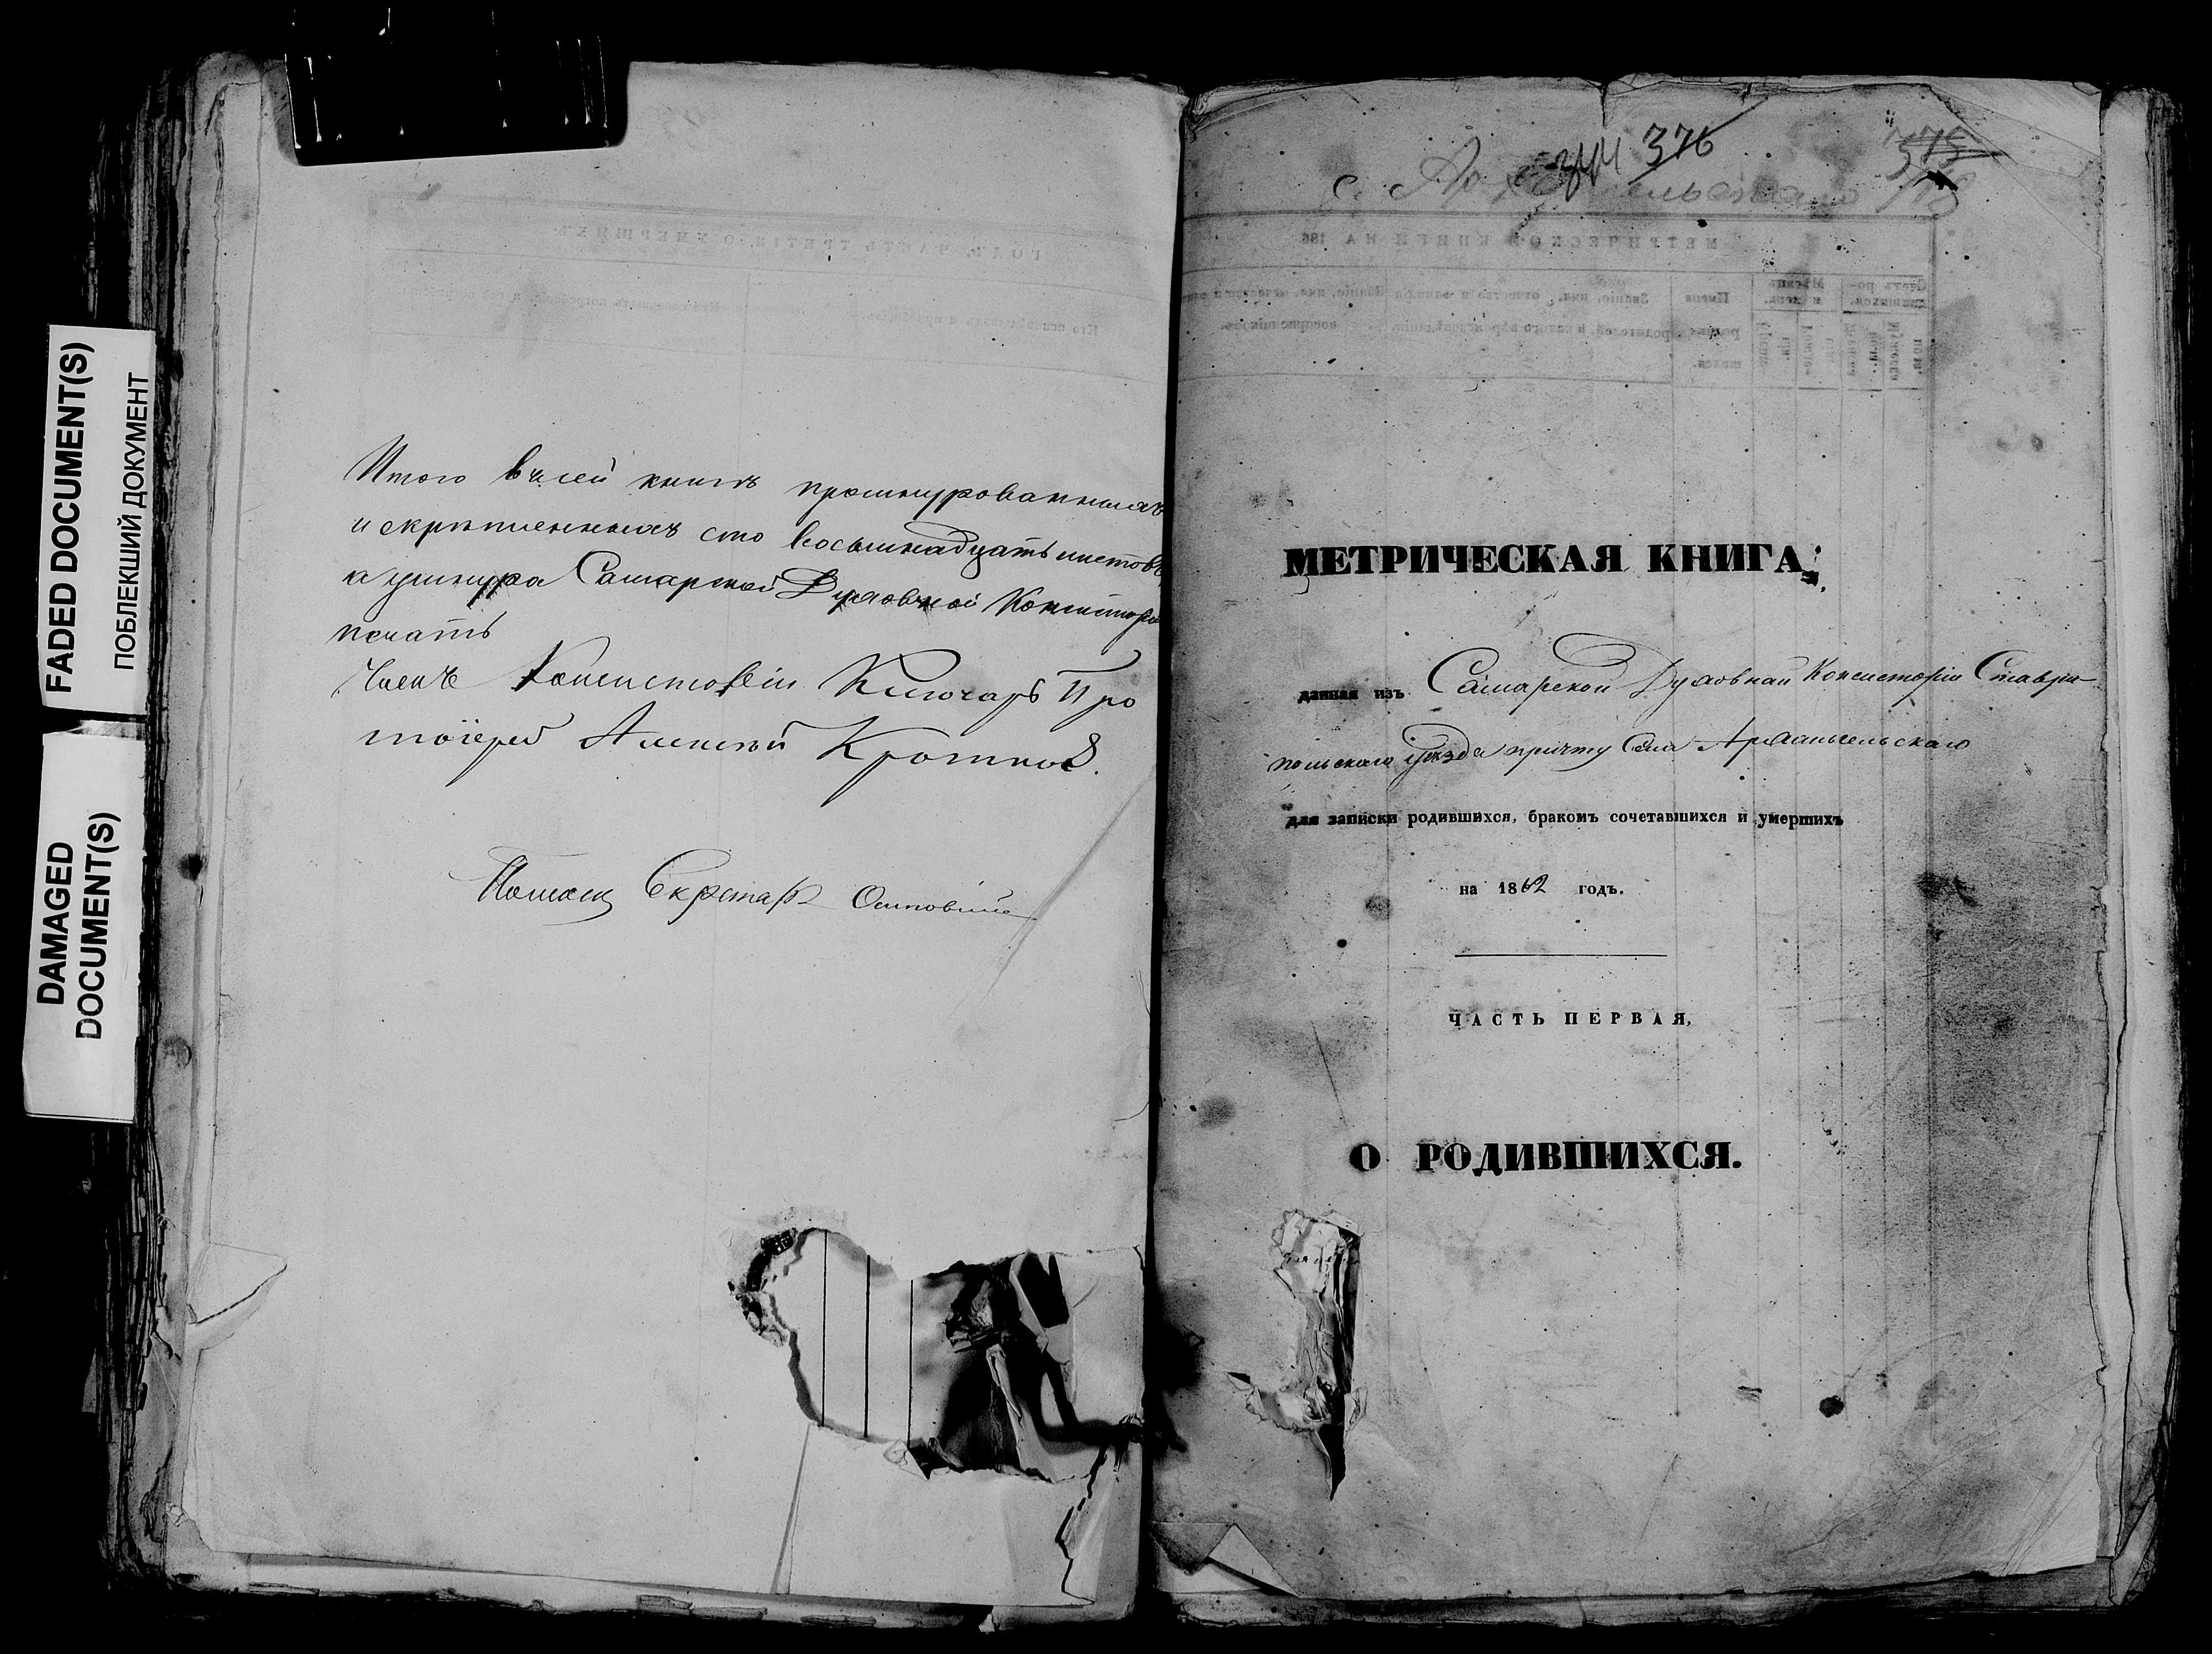 FADED DOCUMENT(S)
ПОБЛЕКШИЙ ДОКУМЕНТ
DAMAGED
DOCUMENT(S)
Итого в сей книгѣ прошнурованныхъ
и скрѣпленныхъ сто восьмнадцать листовъ
а у шнура Самарской Духовной Консисторіи
печать
Членъ Консисторіи Ключарь Про
тоіерей Алексѣй Кротков.
Секретарь
376
с. Архангельскаго
375
МЕТРИЧЕСКОЙ КНИГИ НА 186
ГОДЪ, ЧАСТЬ ТРЕТІЯ, О УМЕРШИХЪ.
МЕТРИЧЕСКАЯ КНИГА,
данная изъ Самарской Духовной Консисторіи Ставро
польскаго уѣзда причту Села Архангельскаго
для записки родившихся, бракомъ сочетавшихся и умершихъ
на 1862 годъ.
ЧАСТЬ ПЕРВАЯ,
О РОДИВШИХСЯ.